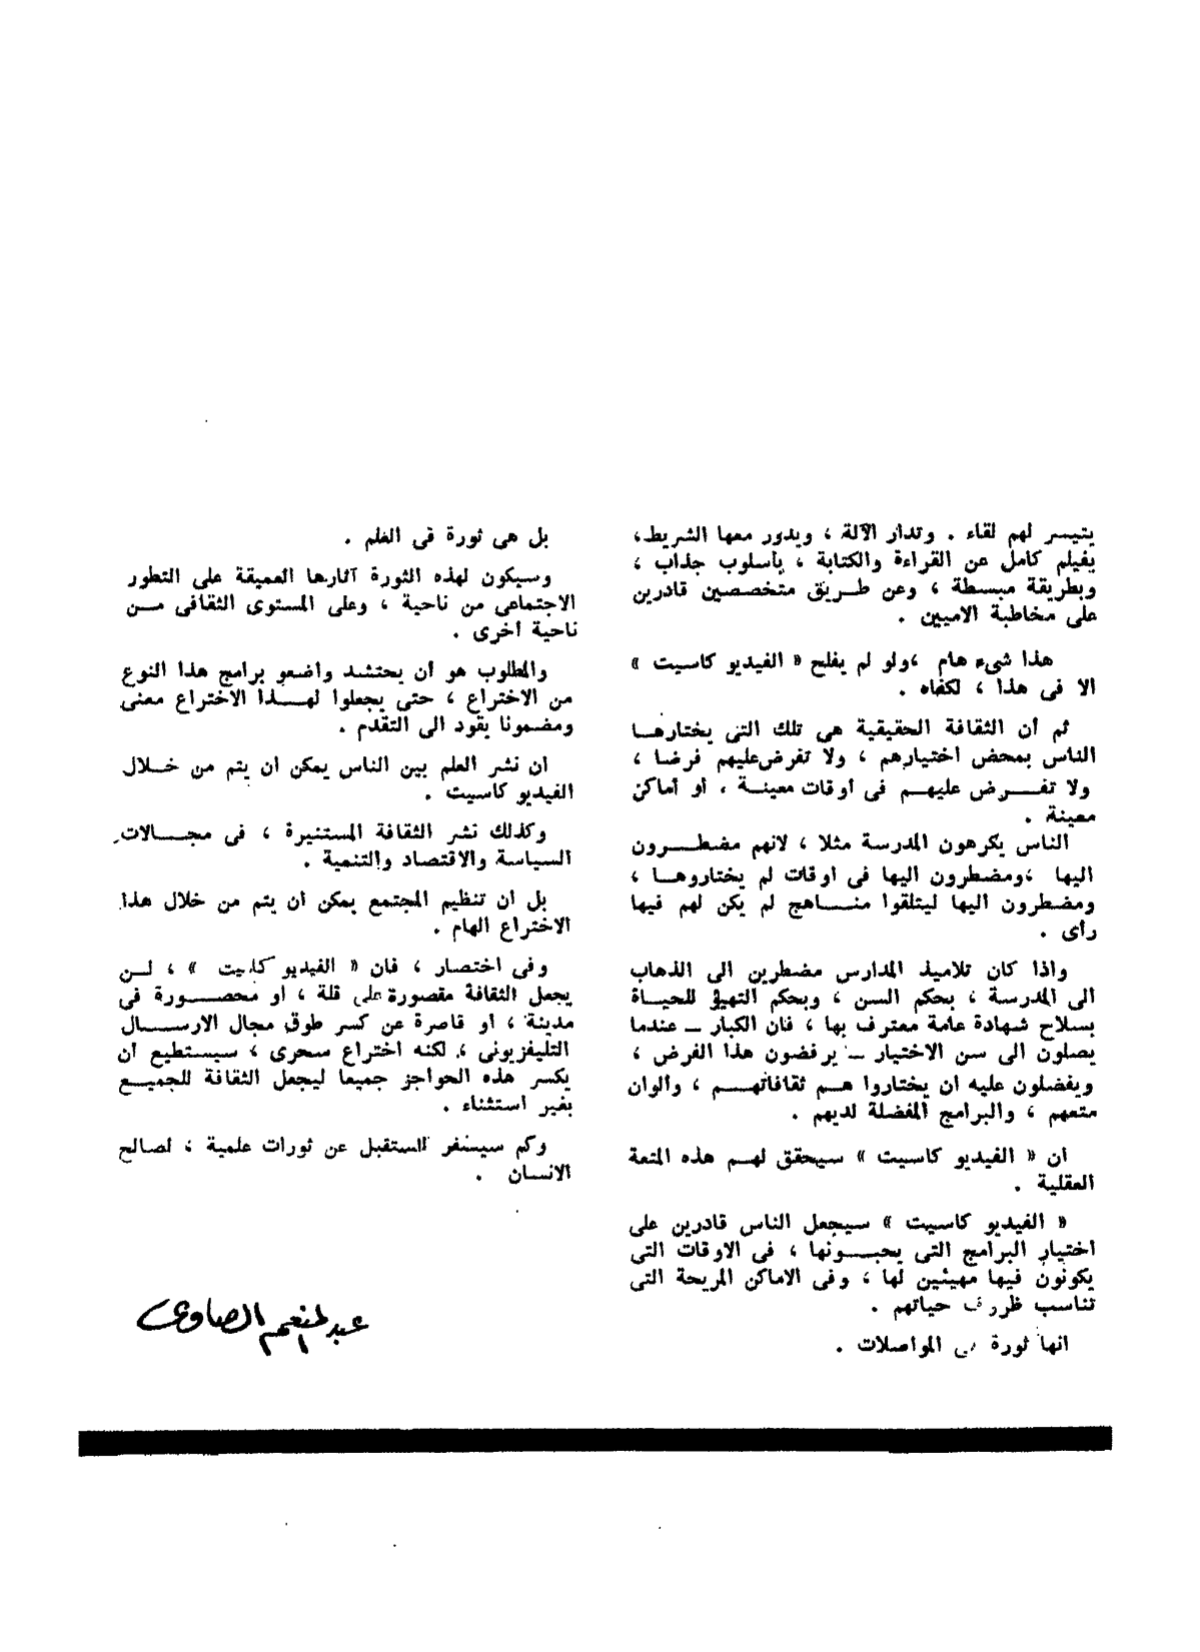 يتيسر لهم لقاء . وتدار الآلة ، ويدور معها الشريط،
بفيلم كامل عن القراءة والكتابة ، بأسلوب جذاب ،
وبطريقة مبسطة ، وعن طريق متخصصين قادرين
على مخاطبة الاميين .
هذا شىء هام ،ولو لم يفلح « الفيديو كاسيت »
الا فى هذا ، لكفاه .
ثم أن الثقافة الحقيقية هى تلك التى يختارها
الناس بمحض اختيارهم ، ولا تفرض عليهم فرضا ،
ولا تفرض عليهم فى أوقات معينة ، أو أماكن
معينة .
الناس يكرهون المدرسة مثلا ، لانهم مضطرون
اليها ،ومضطرون اليها فى اوقات لم يختاروها ،
ومضطرون اليها ليتلقوا مناهج لم يكن لهم فيها
رأى .
واذا كان تلاميذ المدارس مضطرين الى الذهاب
الى المدرسة ، بحكم السن ، وبحكم التهيؤ للحياة
بسلاح شهادة عامة معترف بها ، فان الكبار ــ عندما
يصلون الى سن الاختيار ــ يرفضون هذا الفرض ،
ويفضلون عليه ان يختاروا هم ثقافاتهم ، والوان
متعهم ، والبرامج المفضلة لديهم .
ان « الفيديو كاسيت » سيحقق لهم هذه المتعة
العقلية .
« الفيديو كاسيت » سيجعل الناس قادرين على
اختيار البرامج التى يحبونها ، فى الاوقات التى
يكونون فيها مهيئين لها ، وفى الاماكن المريحة التى
تناسب ظروف حياتهم .
انها ثورة فى المواصلات .
بل هى ثورة فى العلم .
وسيكون لهذه الثورة آثارها العميقة على التطور
الاجتماعى من ناحية ، وعلى المستوى الثقافى من
ناحية أخرى .
والمطلوب هو أن يحتشد واضعو برامج هذا النوع
من الاختراع ، حتى يجعلوا لهذا الاختراع معنى
ومضمونا يقود الى التقدم .
ان نشر العلم بين الناس يمكن ان يتم من خلال
الفيديو كاسيت .
وكذلك نشر الثقافة المستنيرة ، فى مجالات
السياسة والاقتصاد والتنمية .
بل ان تنظيم المجتمع يمكن ان يتم من خلال هذا
الاختراع الهام .
وفى اختصار ، فان « الفيديو كاسيت » ، لن
يجعل الثقافة مقصورة على قلة ، او محصورة فى
مدينة ، أو قاصرة عن كسر طوق مجال الارسال
التليفزيونى ، لكنه اختراع سحرى ، سيستطيع أن
يكسر هذه الحواجز جميعا ليجعل الثقافة للجميع
بغير استثناء .
وكم سيسفر المستقبل عن ثورات علمية ، لصالح
الانسان .
عبد المنعم الصاوى